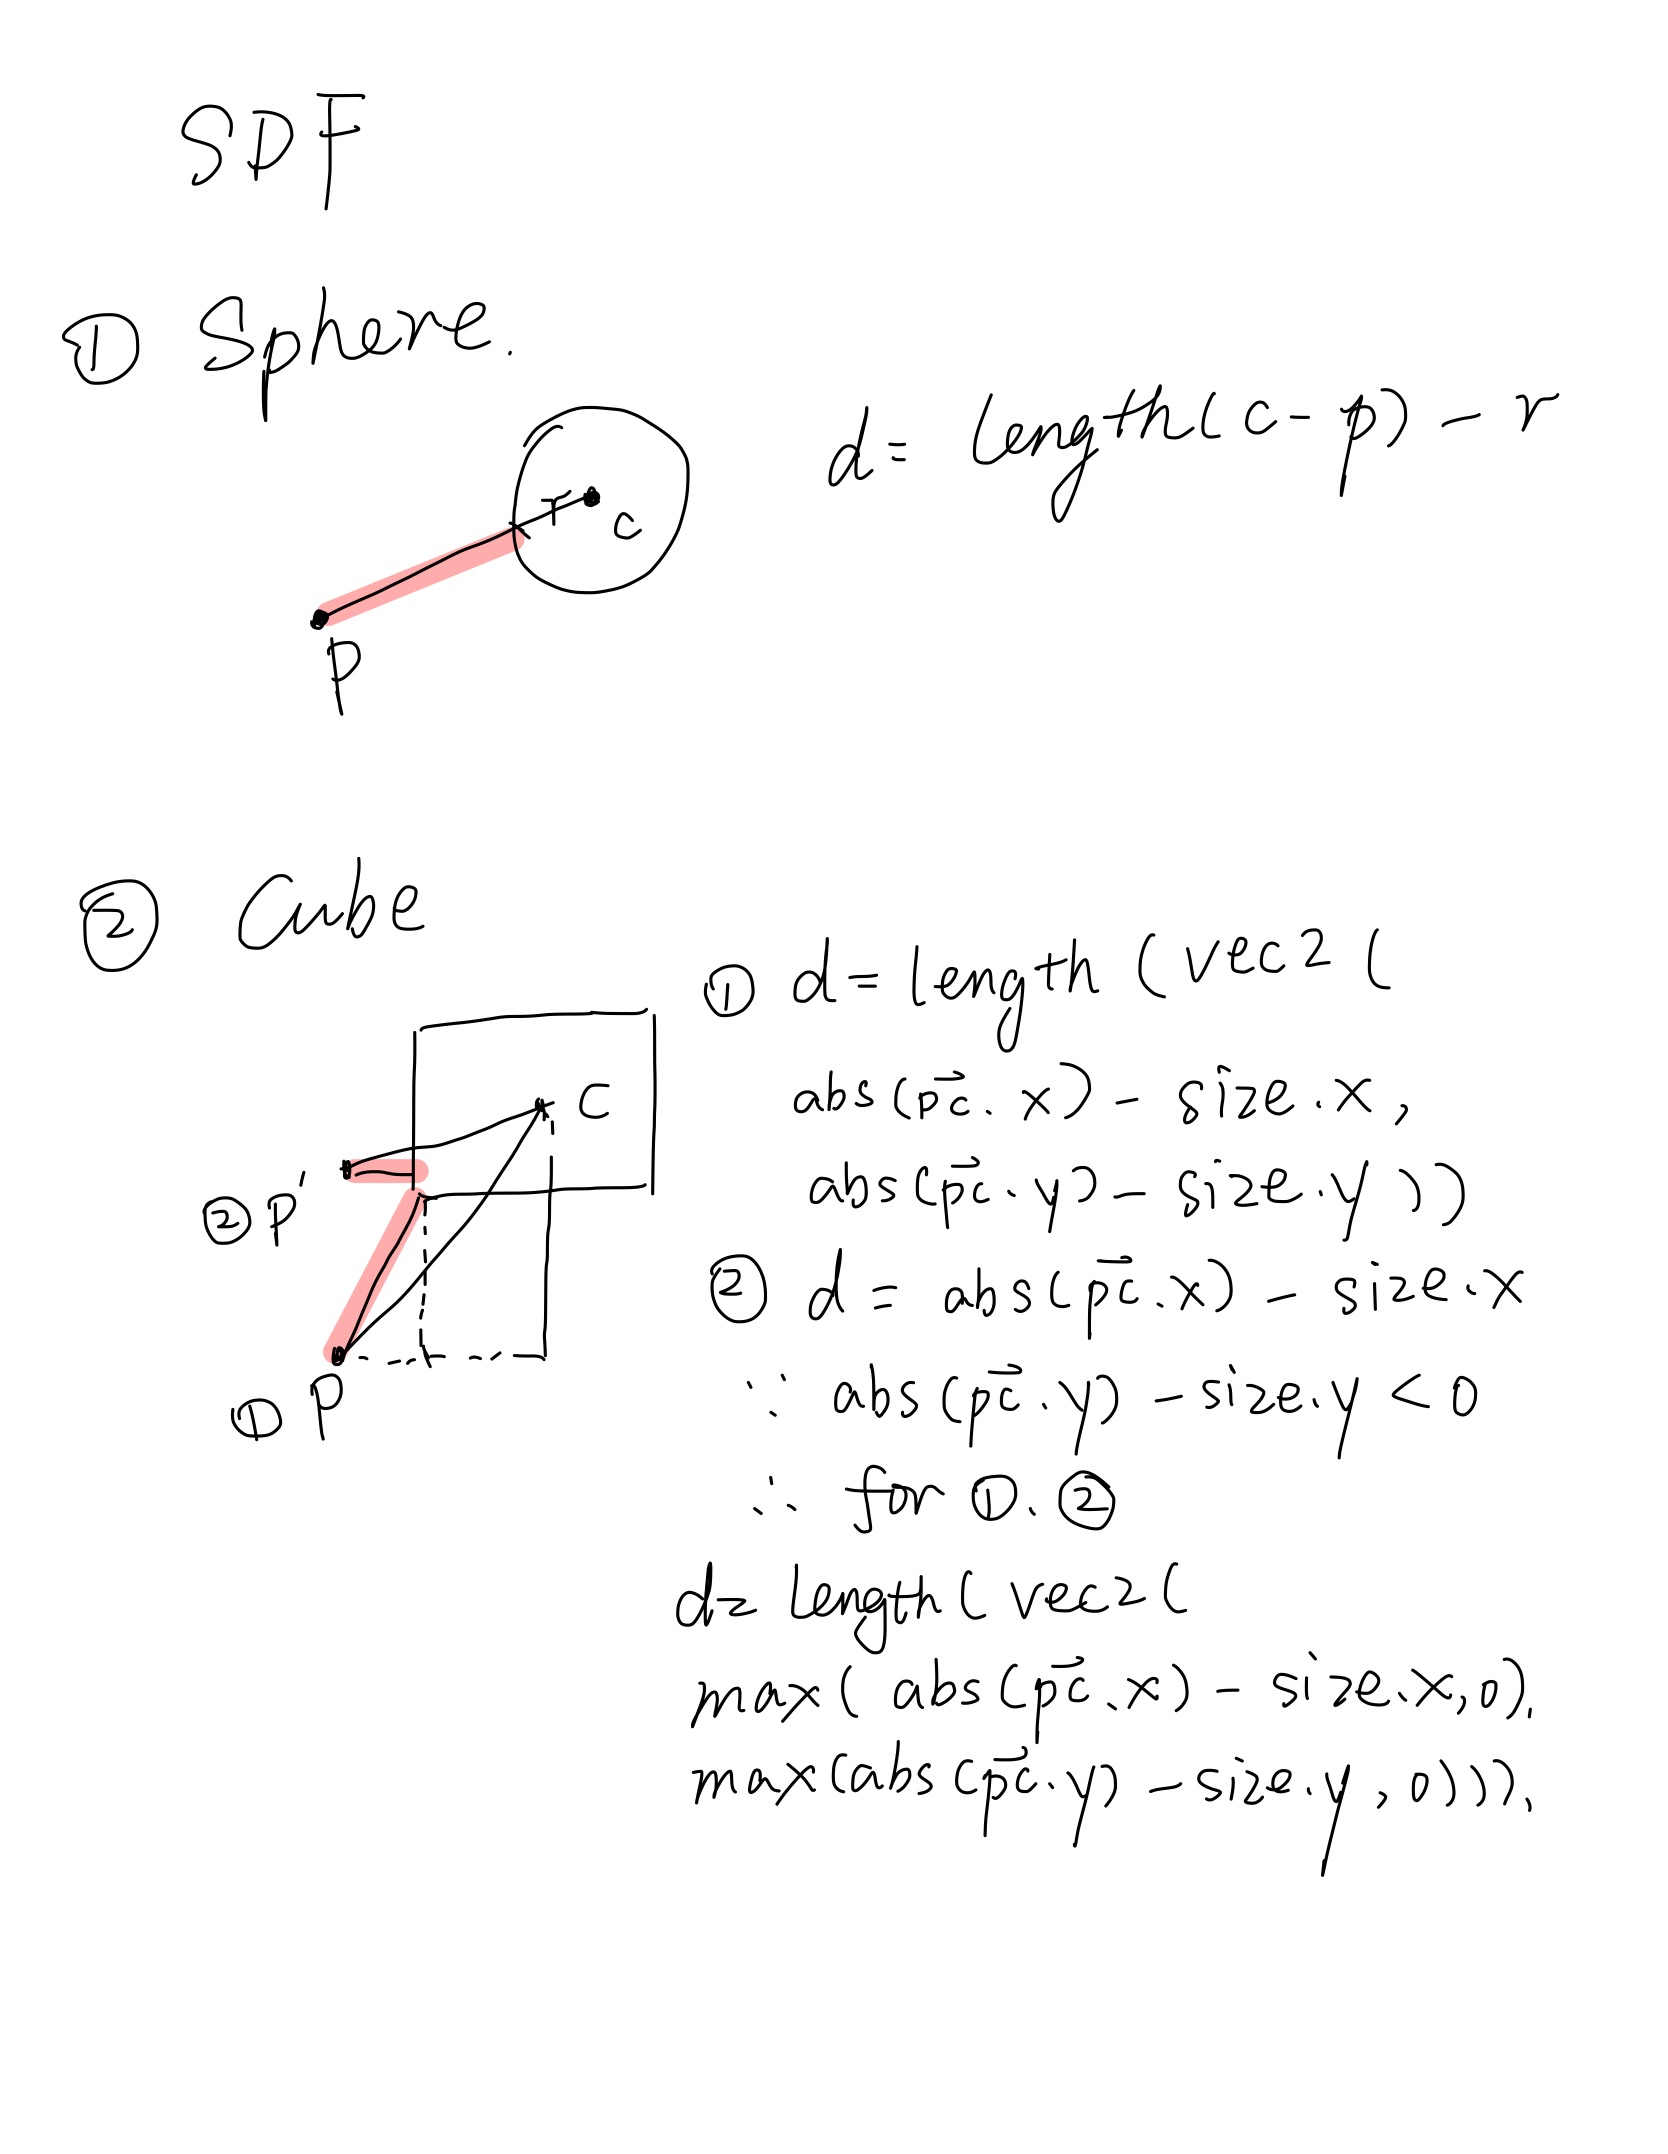 SDF
① Sphere.
d = length(c - p) - r
r
c
p
② Cube
① d = length (vec2 (
abs(p⃗c. x) - size.x,
c
abs(p⃗c.y) - size.y ))
② p'
② d = abs(p⃗c.x) - size.x
① p
∵ abs(p⃗c.y) - size.y < 0
∴ for ①. ②
d = length( vec2 (
max( abs(p⃗c.x) - size.x,0),
max(abs(p⃗c.y) - size.y,0))),